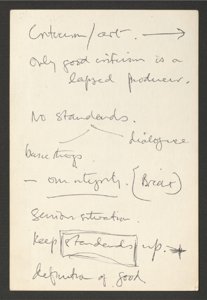 Criticism / art. →
Only good criticism is a
lapsed producer.
No standards.
dialogue
basic things
– our integrity. (Brecht)
Serious situation.
Keep standards up.
definition of good